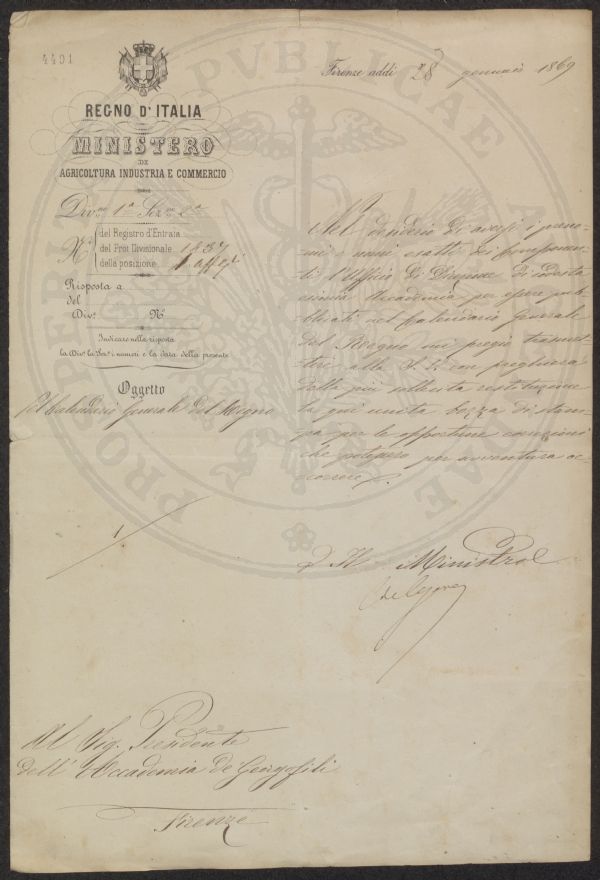 4401
Firenze addì 28 gennaio 1869
REGNO D'ITALIA
MINISTERO
DI
AGRICOLTURA INDUSTRIA E COMMERCIO
Div.ne 1ª Sez.ne 2ª
N.º
del Registro d'Entrata
del Prot Divisionale 1837
della posizione
Risposta a
del
Div.e Nº
Indicare nella risposta
la Div.e la Sez.e i numeri e la data della presente
Oggetto
Calendario Generale del Regno
Nel desiderio di aversi i preno-
mi e nomi esatti dei componen-
ti l'Ufficio di Direzione di codesta
esimia Accademia per essere pub-
blicati nel Calendario Generale
del Regno mi pregio trasmet-
tere alla S. V. con preghiera
della più sollecita restituzione
la qui unita bozza di stam-
pa per le opportune correzioni
che potessero per avventura oc-
correre.
Il Ministro
Al Sig. Presidente
dell'Accademia de Georgofili
Firenze
PUBLICAE